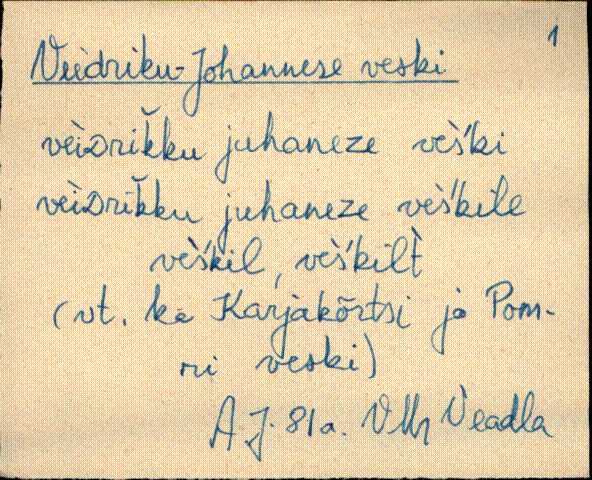 1
Veidriku-Johannese veski
vèiᴅrik̆ku juhaneze vèš́ki
vèiᴅrik̆ku juhaneze vèš́kile
vèš́kil, vèš́kilt̀
(vt. ka Karjakõrtsi ja Pom-
ri veski)
A.J. 81a. VMr Veadla